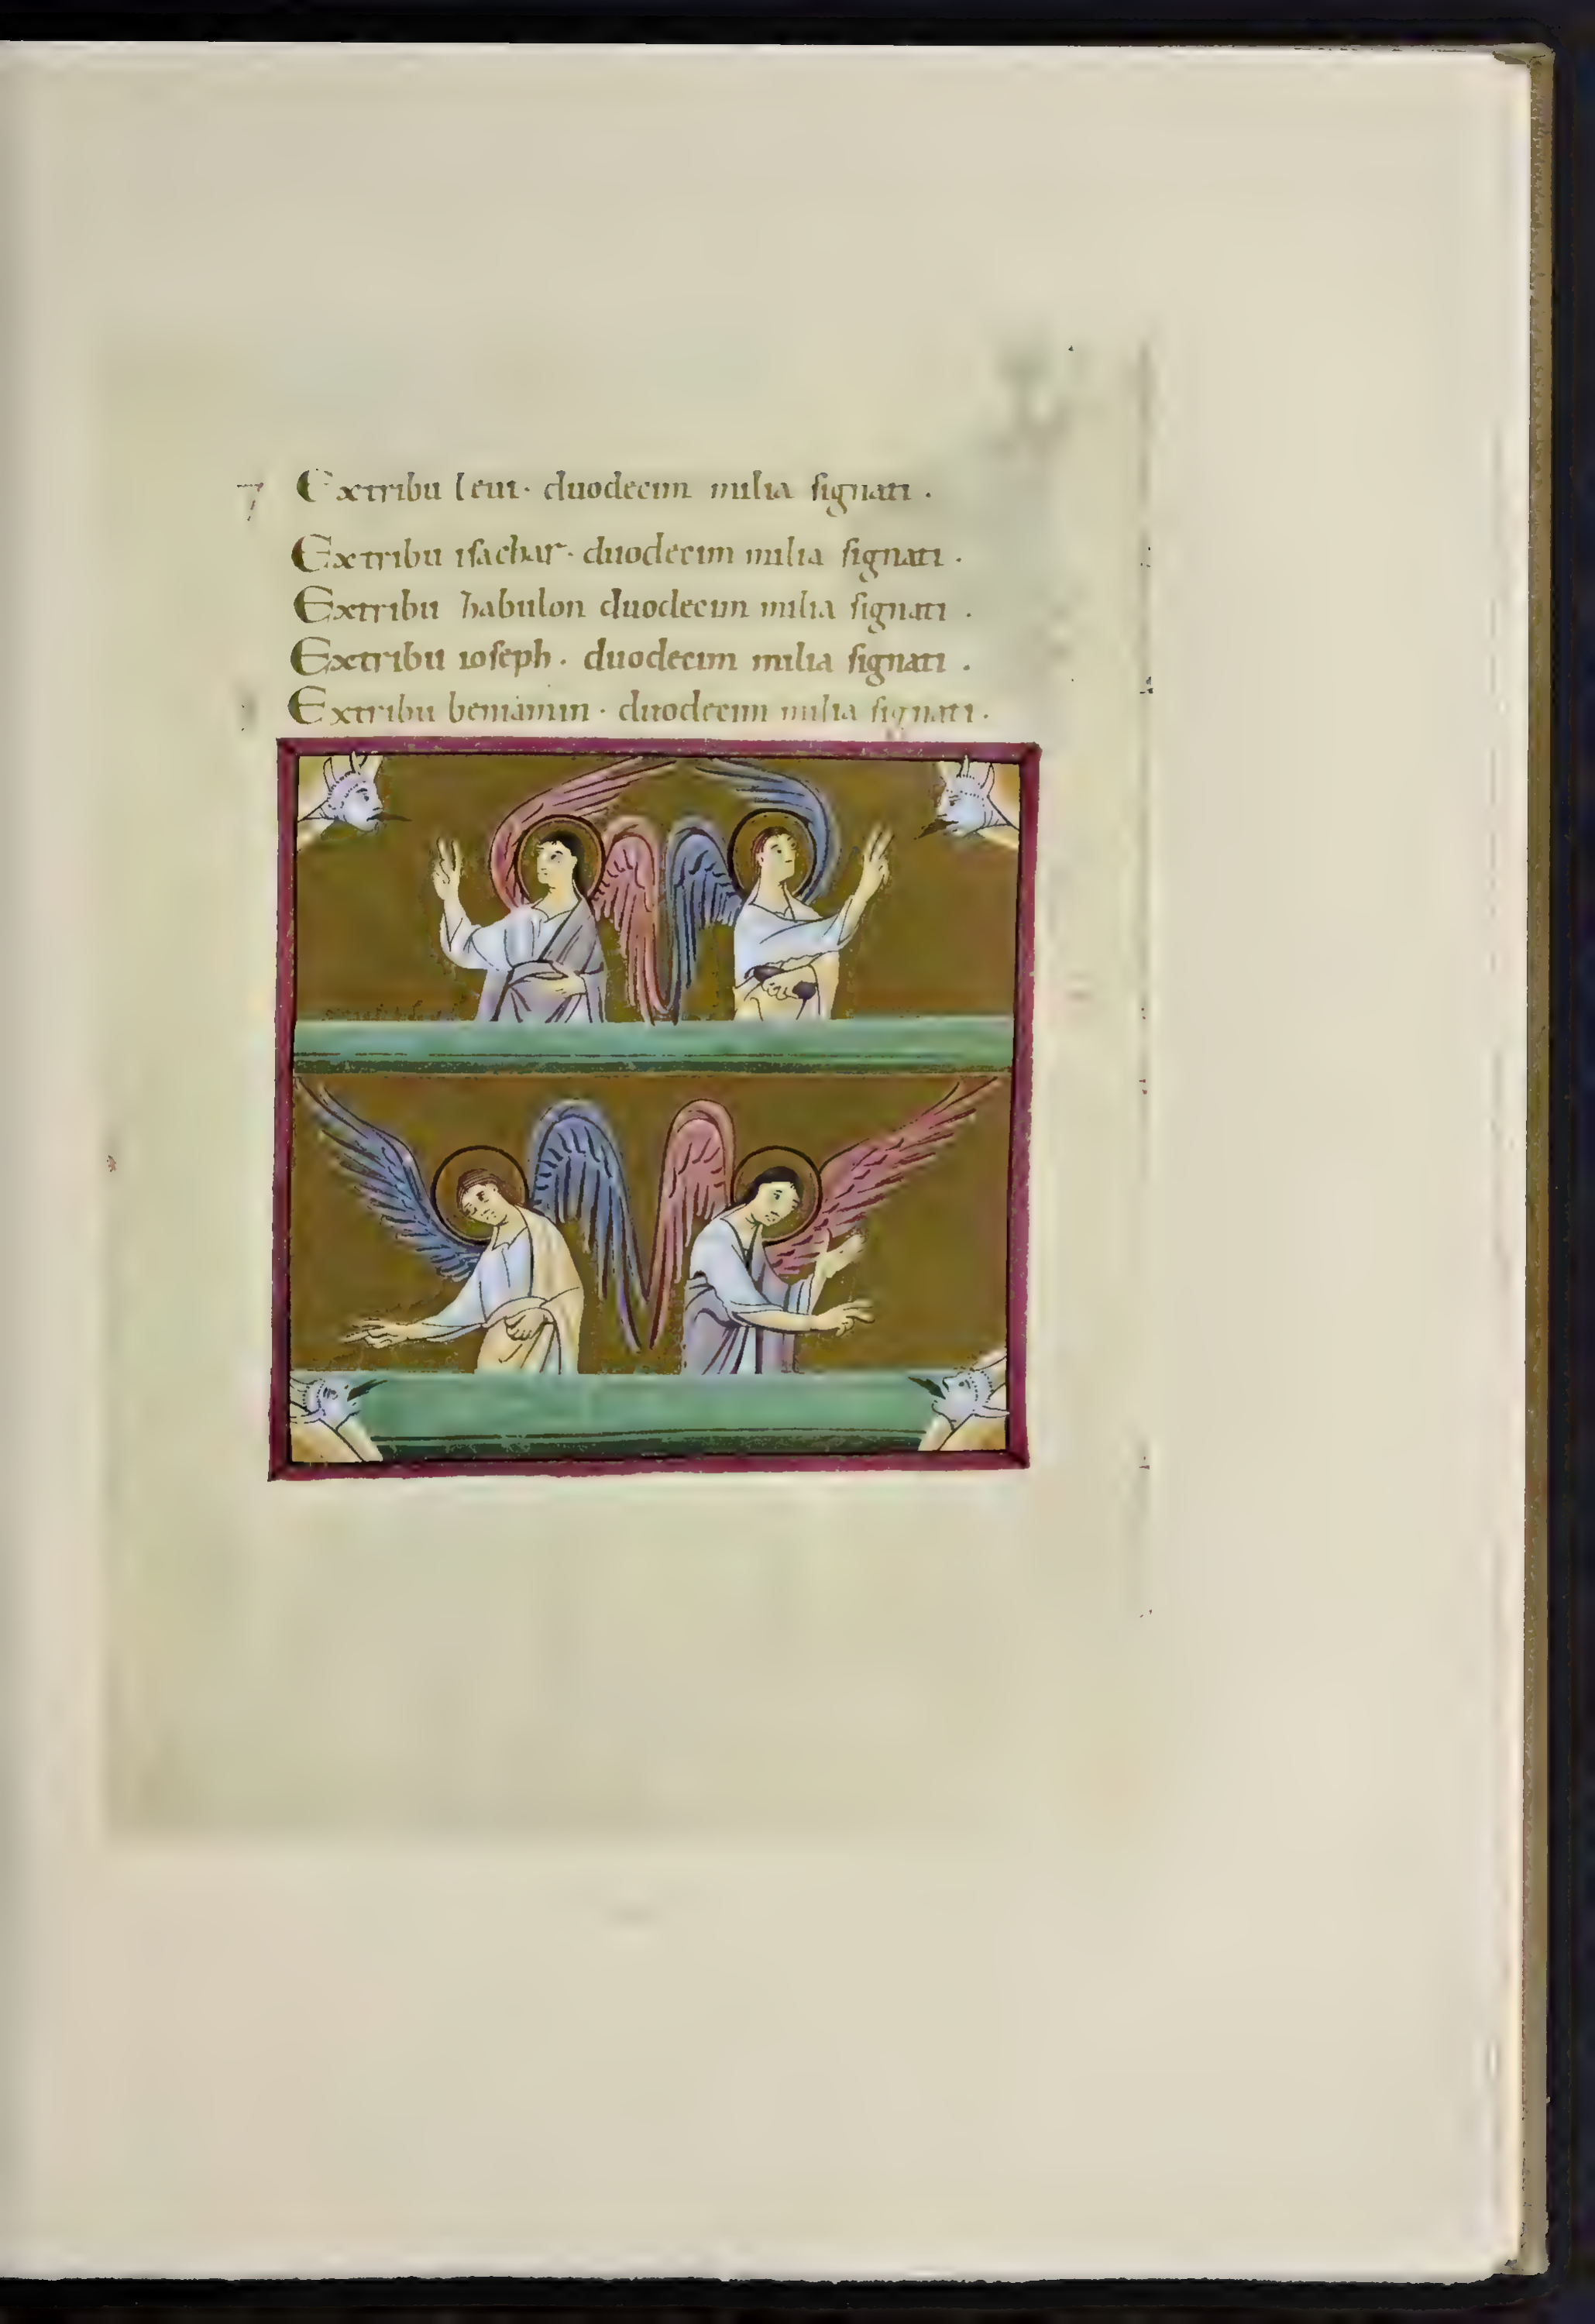 7 Extribu leui· duodecim milia signati .
Extribu isachar· duodecim milia signati .
Extribu zabulon duodecim milia signati .
Extribu ioseph· duodecim milia signati .
Extribu beniamin· duodecim milia signati .